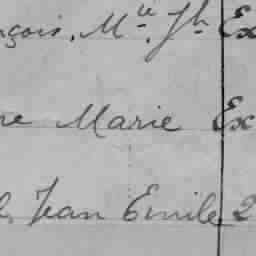 nçois, M^le. J^h Ex
re Marie Ex
l, Jean Emile 2